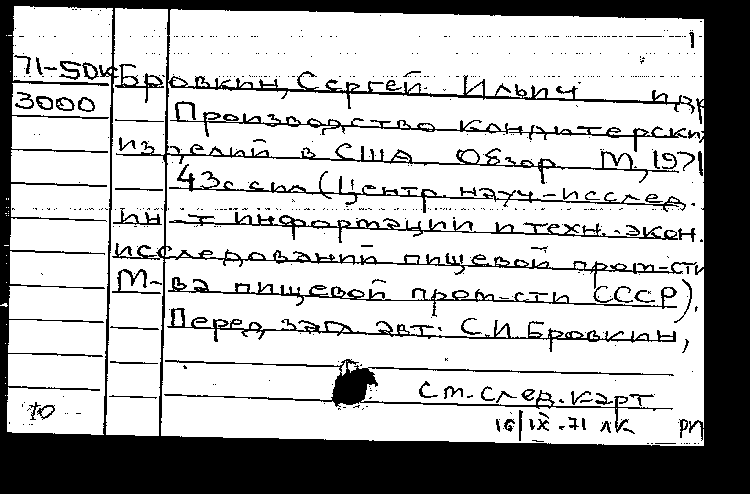 1
71-50к Бровкин, Сергей Ильич и др
3000 Производство кондитерски
изделий в США. Обзор. М, 1971
43с. с ил (Центр. науч-исслед.
ин-т информации и техн.-экон.
исследований пищевой пром-сти
М-ва пищевой пром-сти СССР).
Перед загл авт: С.И. Бровкин,
См. след. карт.
10 16/IX-71 лк РП